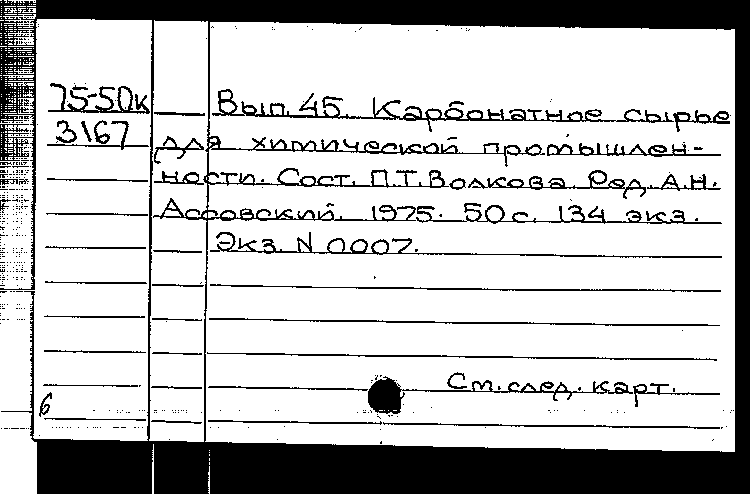 75-50к Вып. 45. Карбонатное сырье
3167 для химической промышлен-
ности. Сост. П.Т. Волкова. Ред. А.Н.
Ассовский. 1975. 50 с. 134 экз.
Экз. N 0007.
См. след. карт.
6